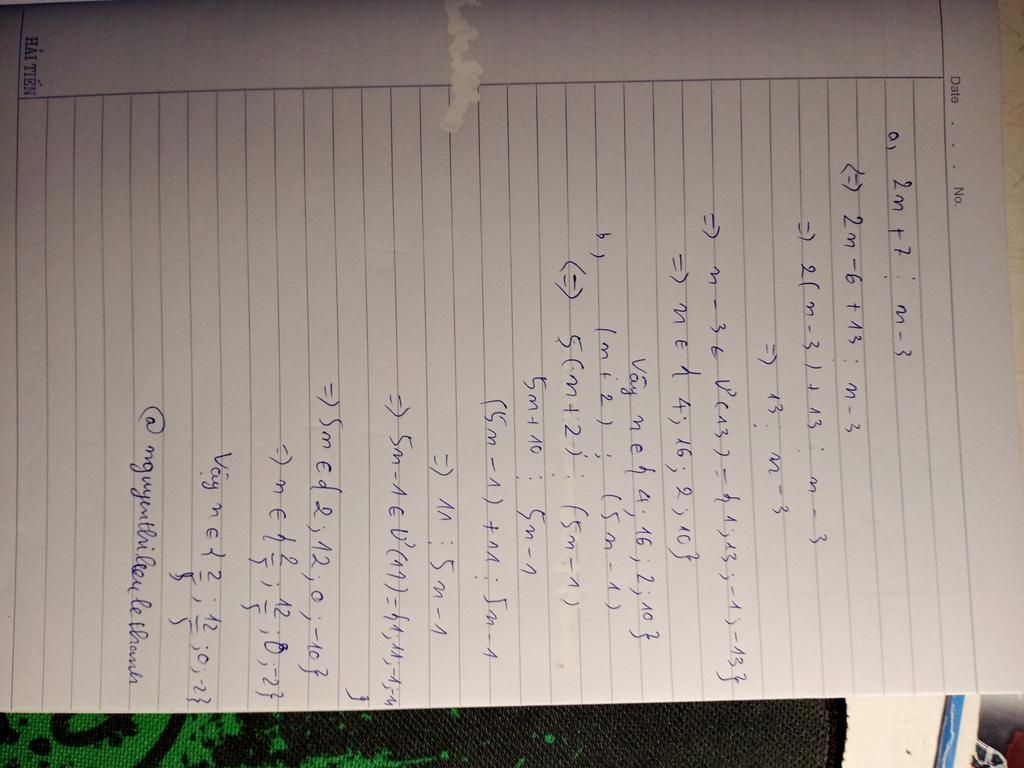 Date . . . No.
a, 2n + 7 ⋮ n - 3
(=) 2n - 6 + 13 ⋮ n - 3
=) 2(n - 3) + 13 ⋮ n - 3
=) 13 ⋮ n - 3
=) n - 3 ∈ Ư(13) = { 1; 13; -1; -13}
=) n ∈ { 4; 16; 2; 10}
Vậy n ∈ { 4; 16; 2; 10}
b, (n + 2) ⋮ (5n - 1)
(=) 5(n + 2) ⋮ (5n - 1)
5n + 10 ⋮ 5n - 1
(5n - 1) + 11 ⋮ 5n - 1
=) 11 ⋮ 5n - 1
=) 5n - 1 ∈ Ư(11) = { 1; 11; -1; -11
}
=) 5n ∈ { 2; 12; 0; -10}
=) n ∈ { 2/5; 12/5; 0; -2}
Vậy n ∈ { 2/5; 12/5; 0; -2}
HẢI TIẾN